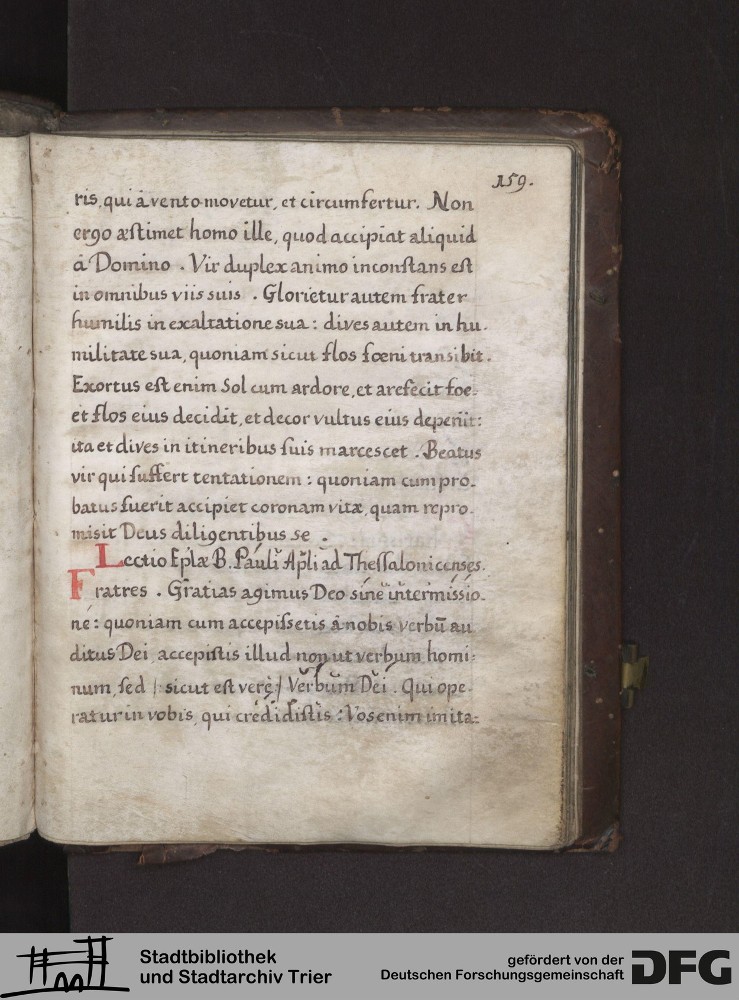 159.
ris, qui â vento movetur, et circumfertur. Non
ergo æstimet homo ille, quod accipiat aliquid
â Domino. Vir duplex animo inconstans est
in omnibus viis suis. Glorietur autem frater
humilis in exaltatione sua: dives autem in hu-
militate sua, quoniam sicut flos fœni transibit.
Exortus est enim Sol cum ardore, et arefecit foe-
et flos eius decidit, et decor vultus eius deperiit:
ita et dives in itineribus suis marcescet. Beatus
vir qui suffert tentationem: quoniam cum pro-
batus fuerit accipiet coronam vitæ, quam repro-
misit Deus diligentibus se.
Lectio Eplæ B. Pauli Apli ad Thessalonicenses.
Fratres. Gratias agimus Deo sine intermissio-
ne: quoniam cum accepissetis â nobis verbū au
ditus Dei, accepistis illud non ut verbum homi-
num, sed / sicut est verè / Verbum Dei. Qui ope-
ratur in vobis, qui credidistis: Vos enim imita-
Stadtbibliothek
und Stadtarchiv Trier
gefördert von der
Deutschen Forschungsgemeinschaft
DFG